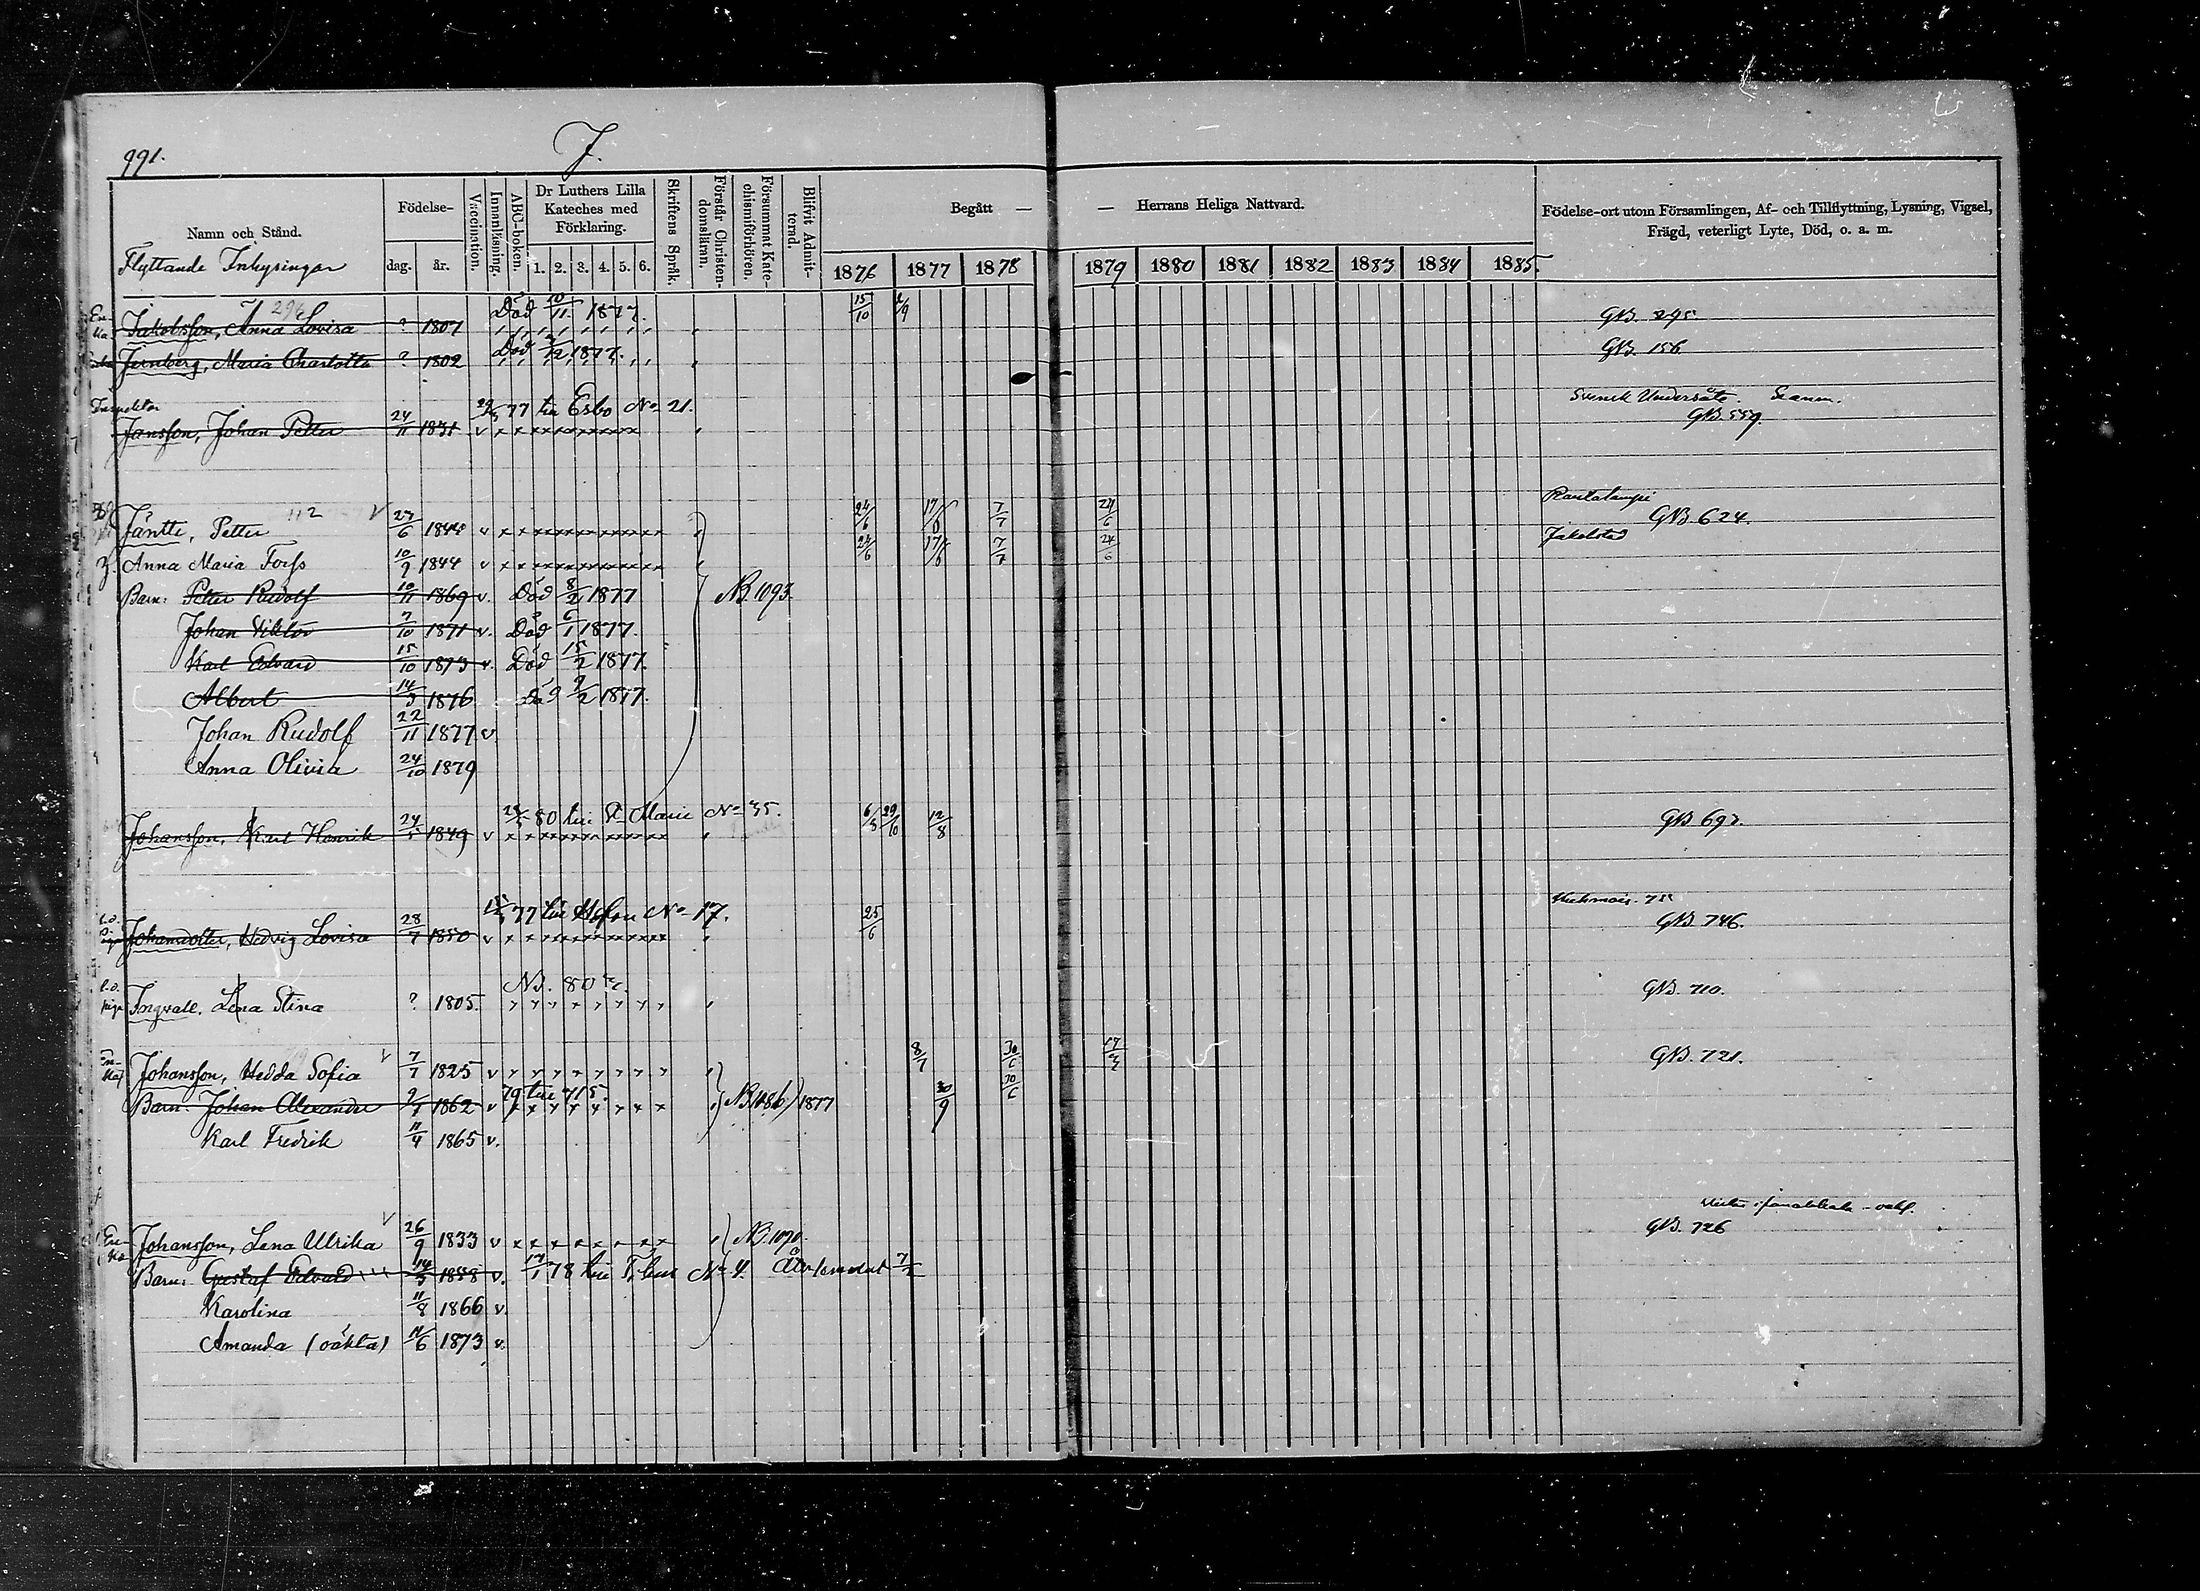 991.
J.
Namn och Stånd.
Flyttande Inhysingar
Födelse-
dag.
år.
Vaccination.
Innanläsning.
ABC-boken.
Dr Luthers Lilla Kateches med Förklaring.
1. 2. 3. 4. 5. 6.
Skriftens Språk.
Förstår Christendomsläran.
Försummat Katechismiförhören.
Blifvit Admitterad.
Begått — — Herrans Heliga Nattvard.
1876 1877 1878 1879 1880 1881 1882 1883 1884 1885.
Födelse-ort utom Församlingen, Af- och Tillflyttning, Lysning, Vigsel, Frägd, veterligt Lyte, Död, o. a. m.
296
Död 10/11 1877.
Enka Jakobsson, Anna Lovisa ? 1807 15/10 GB. 295
Död /12 1877.
Jernberg, Maria Charlotta ? 1802 GB. 156
77 till Esbo No 21. Svensk Undersåte.
Jansson, Johan Petter 24/11 1831 v GB. 557.
112 Rautalampi
Jäntti, Petter 27/6 1844 v 24/6 17/6 7/7 24/6 GB 624.
Jakobstad
Anna Maria Forss 10/9 1844 v 24/6 17/6 7/7 24/6
Barn: Petter Rudolf 10/11 1869 v. Död 8/2 1877 NB. 1093.
Johan Viktor 7/10 1871 v. Död 6/1 1877.
Karl Edvard 15/10 1873 v. Död 15/2 1877.
Albert 14/3 1876 Död 9/2 1877.
Johan Rudolf 22/11 1877 v.
Anna Olivia 24/10 1879
80 till St Marie No 35.
Johansson, Karl Henrik 24/5 1849 v 6/8 29/10 12/8 GB 697.
77 till No 17.
Johansdotter, Hedvig Lovisa 28/7 1850 v 25/6 GB. 746.
Ingvall, Lena Stina ? 1805. GB. 710.
Enka Johansson, Hedda Sofia 7/7 1825 v 8/7 30/6 17/ GB. 721.
79 till 715.
Barn: Johan Alexander 1862 v NB 1486/1877 30/9 30/6
Karl Fredrik 11/4 1865 v.
Enka Johansson, Lena Ulrika 26/9 1833 v NB. 1090. GB. 726
Barn: Gustaf Edvard 14/5 1858 v. 17/1 78 till No 4. 7/2
Karolina 11/8 1866 v.
Amanda (oäkta) 11/6 1873 v.